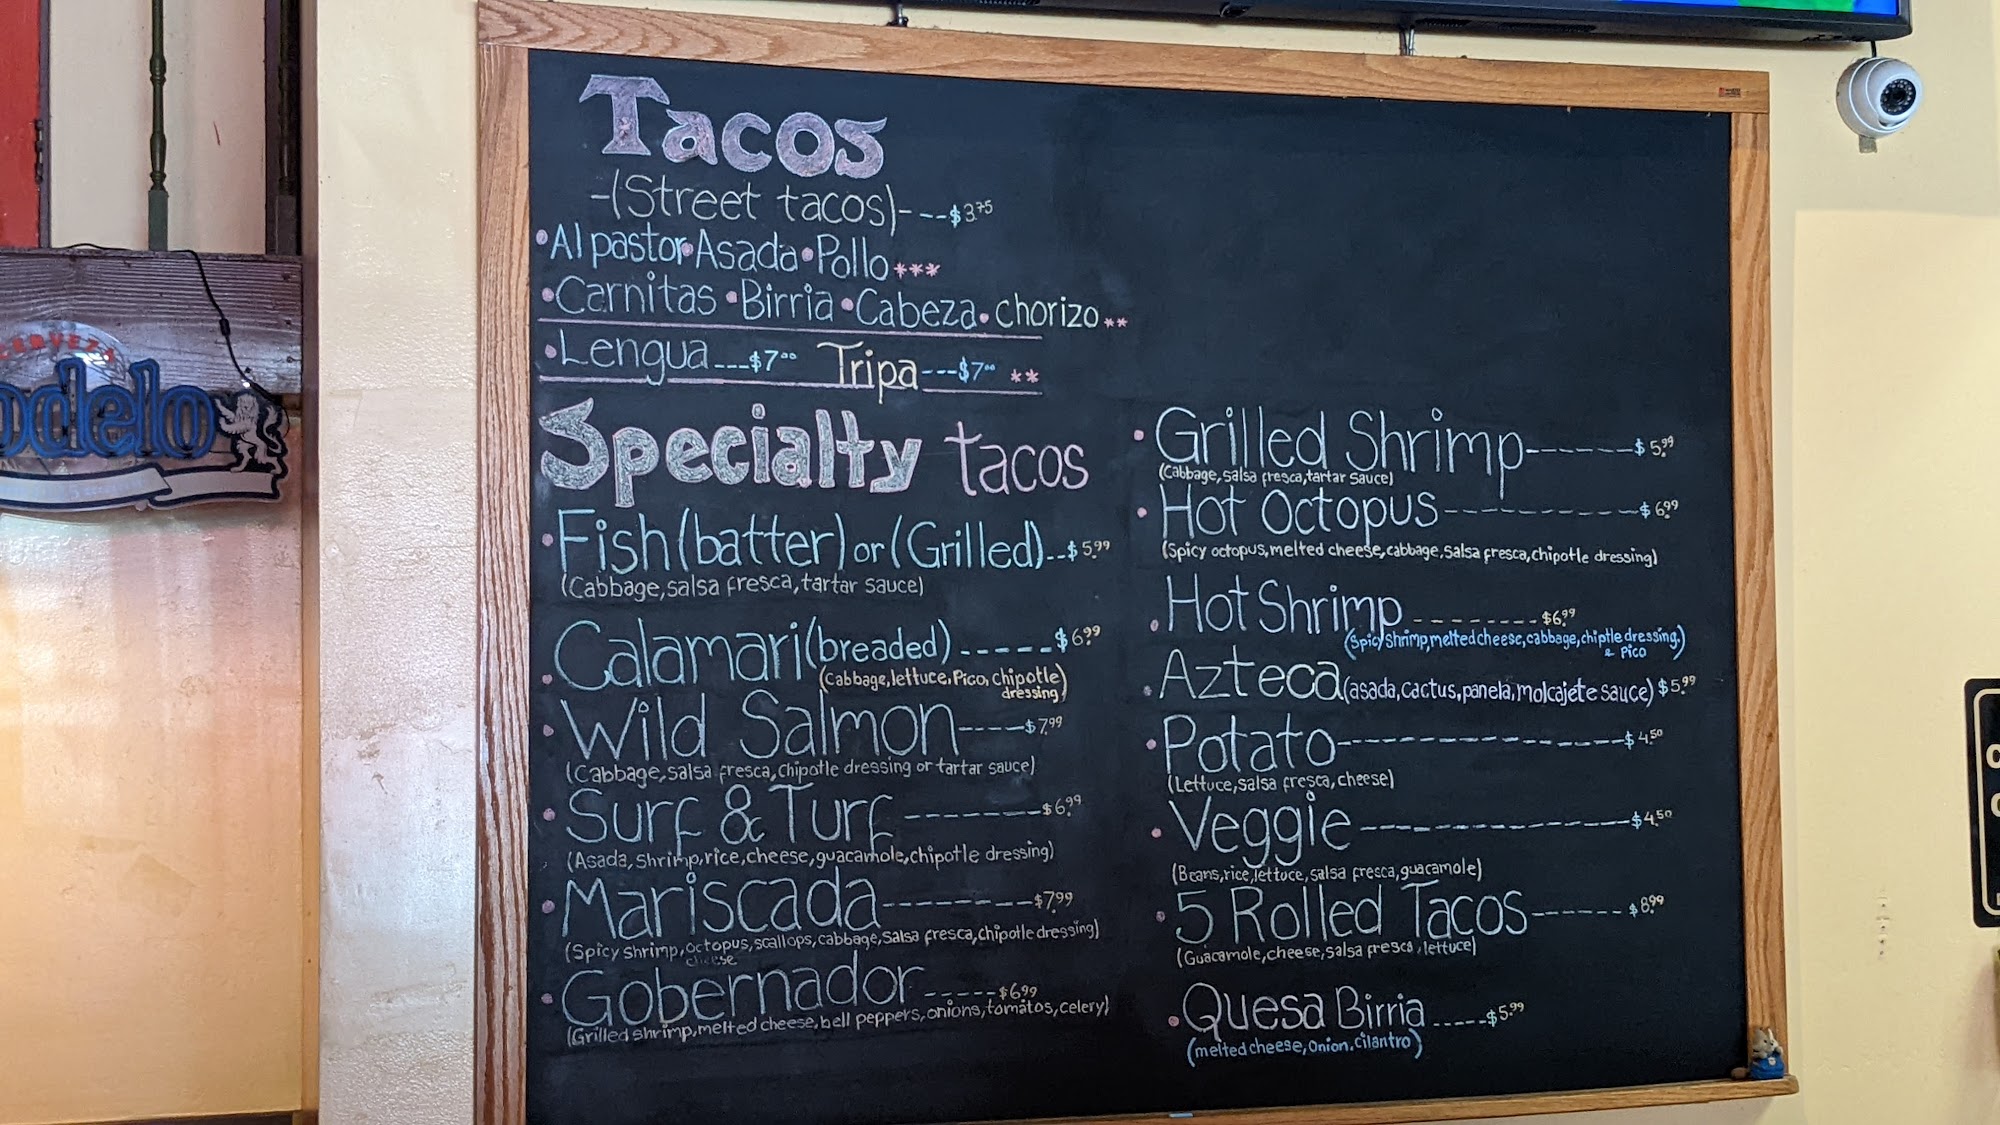 Tacos
-(Street tacos)- --$3.75
•Al pastor•Asada•Pollo***
•Carnitas •Birria •Cabeza•chorizo**
•Lengua---$7.00 Tripa---$7.00 **
Specialty tacos
•Fish(batter) or (Grilled)--$5.99
(Cabbage,salsa fresca,tartar sauce)
•Calamari(breaded)------$6.99
(Cabbage,lettuce,Pico,chipotle
dressing)
•Wild Salmon----$7.99
(Cabbage,salsa fresca,chipotle dressing or tartar sauce)
•Surf & Turf-------$6.99
(Asada,shrimp,rice,cheese,guacamole,chipotle dressing)
•Mariscada--------$7.99
(Spicy shrimp,octopus,scallops,cabbage,salsa fresca,chipotle dressing)
cheese
•Gobernador-----$6.99
(Grilled shrimp,melted cheese,bell peppers,onions,tomatos,celery)
•Grilled Shrimp------$5.99
(Cabbage,salsa fresca,tartar sauce)
•Hot Octopus----------$6.99
(Spicy octopus,melted cheese,cabbage,salsa fresca,chipotle dressing)
•Hot Shrimp--------$6.99
(Spicy shrimp,melted cheese,cabbage,chiptle dressing,)
& Pico
•Azteca(asada,cactus,panela,molcajete sauce) $5.99
•Potato---------------$4.50
(Lettuce,salsa fresca,cheese)
•Veggie--------------$4.50
(Beans,rice,lettuce,salsa fresca,guacamole)
•5 Rolled Tacos------$8.99
(Guacamole,cheese,salsa fresca,lettuce)
•Quesa Birria-----$5.99
(melted cheese,Onion.cilantro)
CERVEZA
odelo